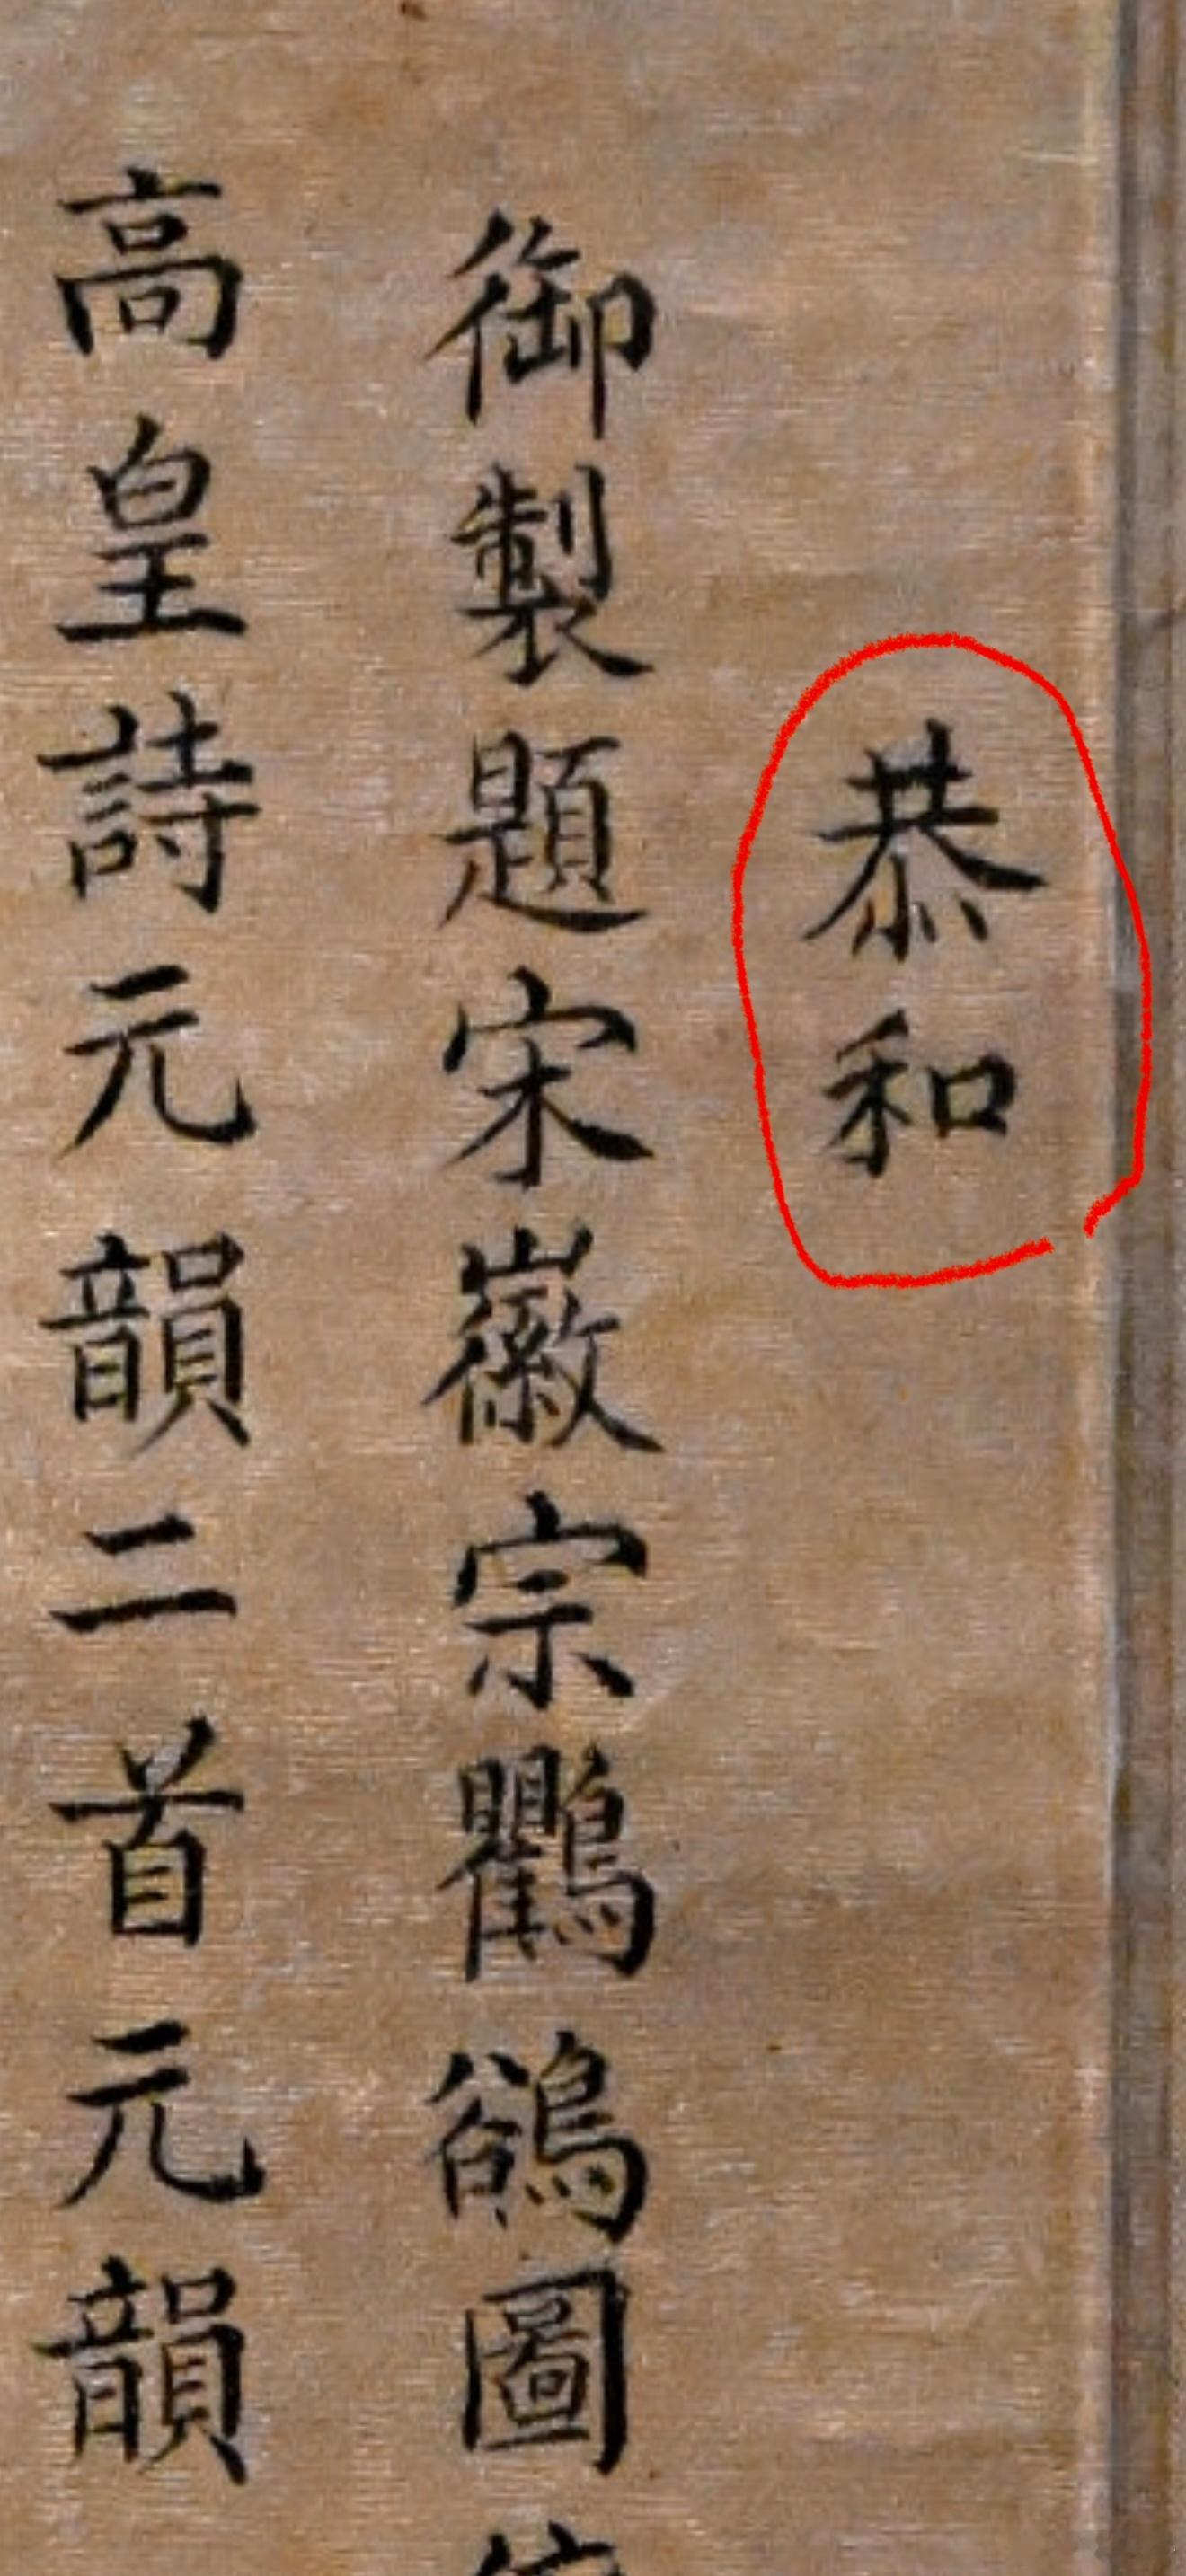 恭和
御製題宋徽宗鸜鵒圖
高皇詩元韻二首元韻